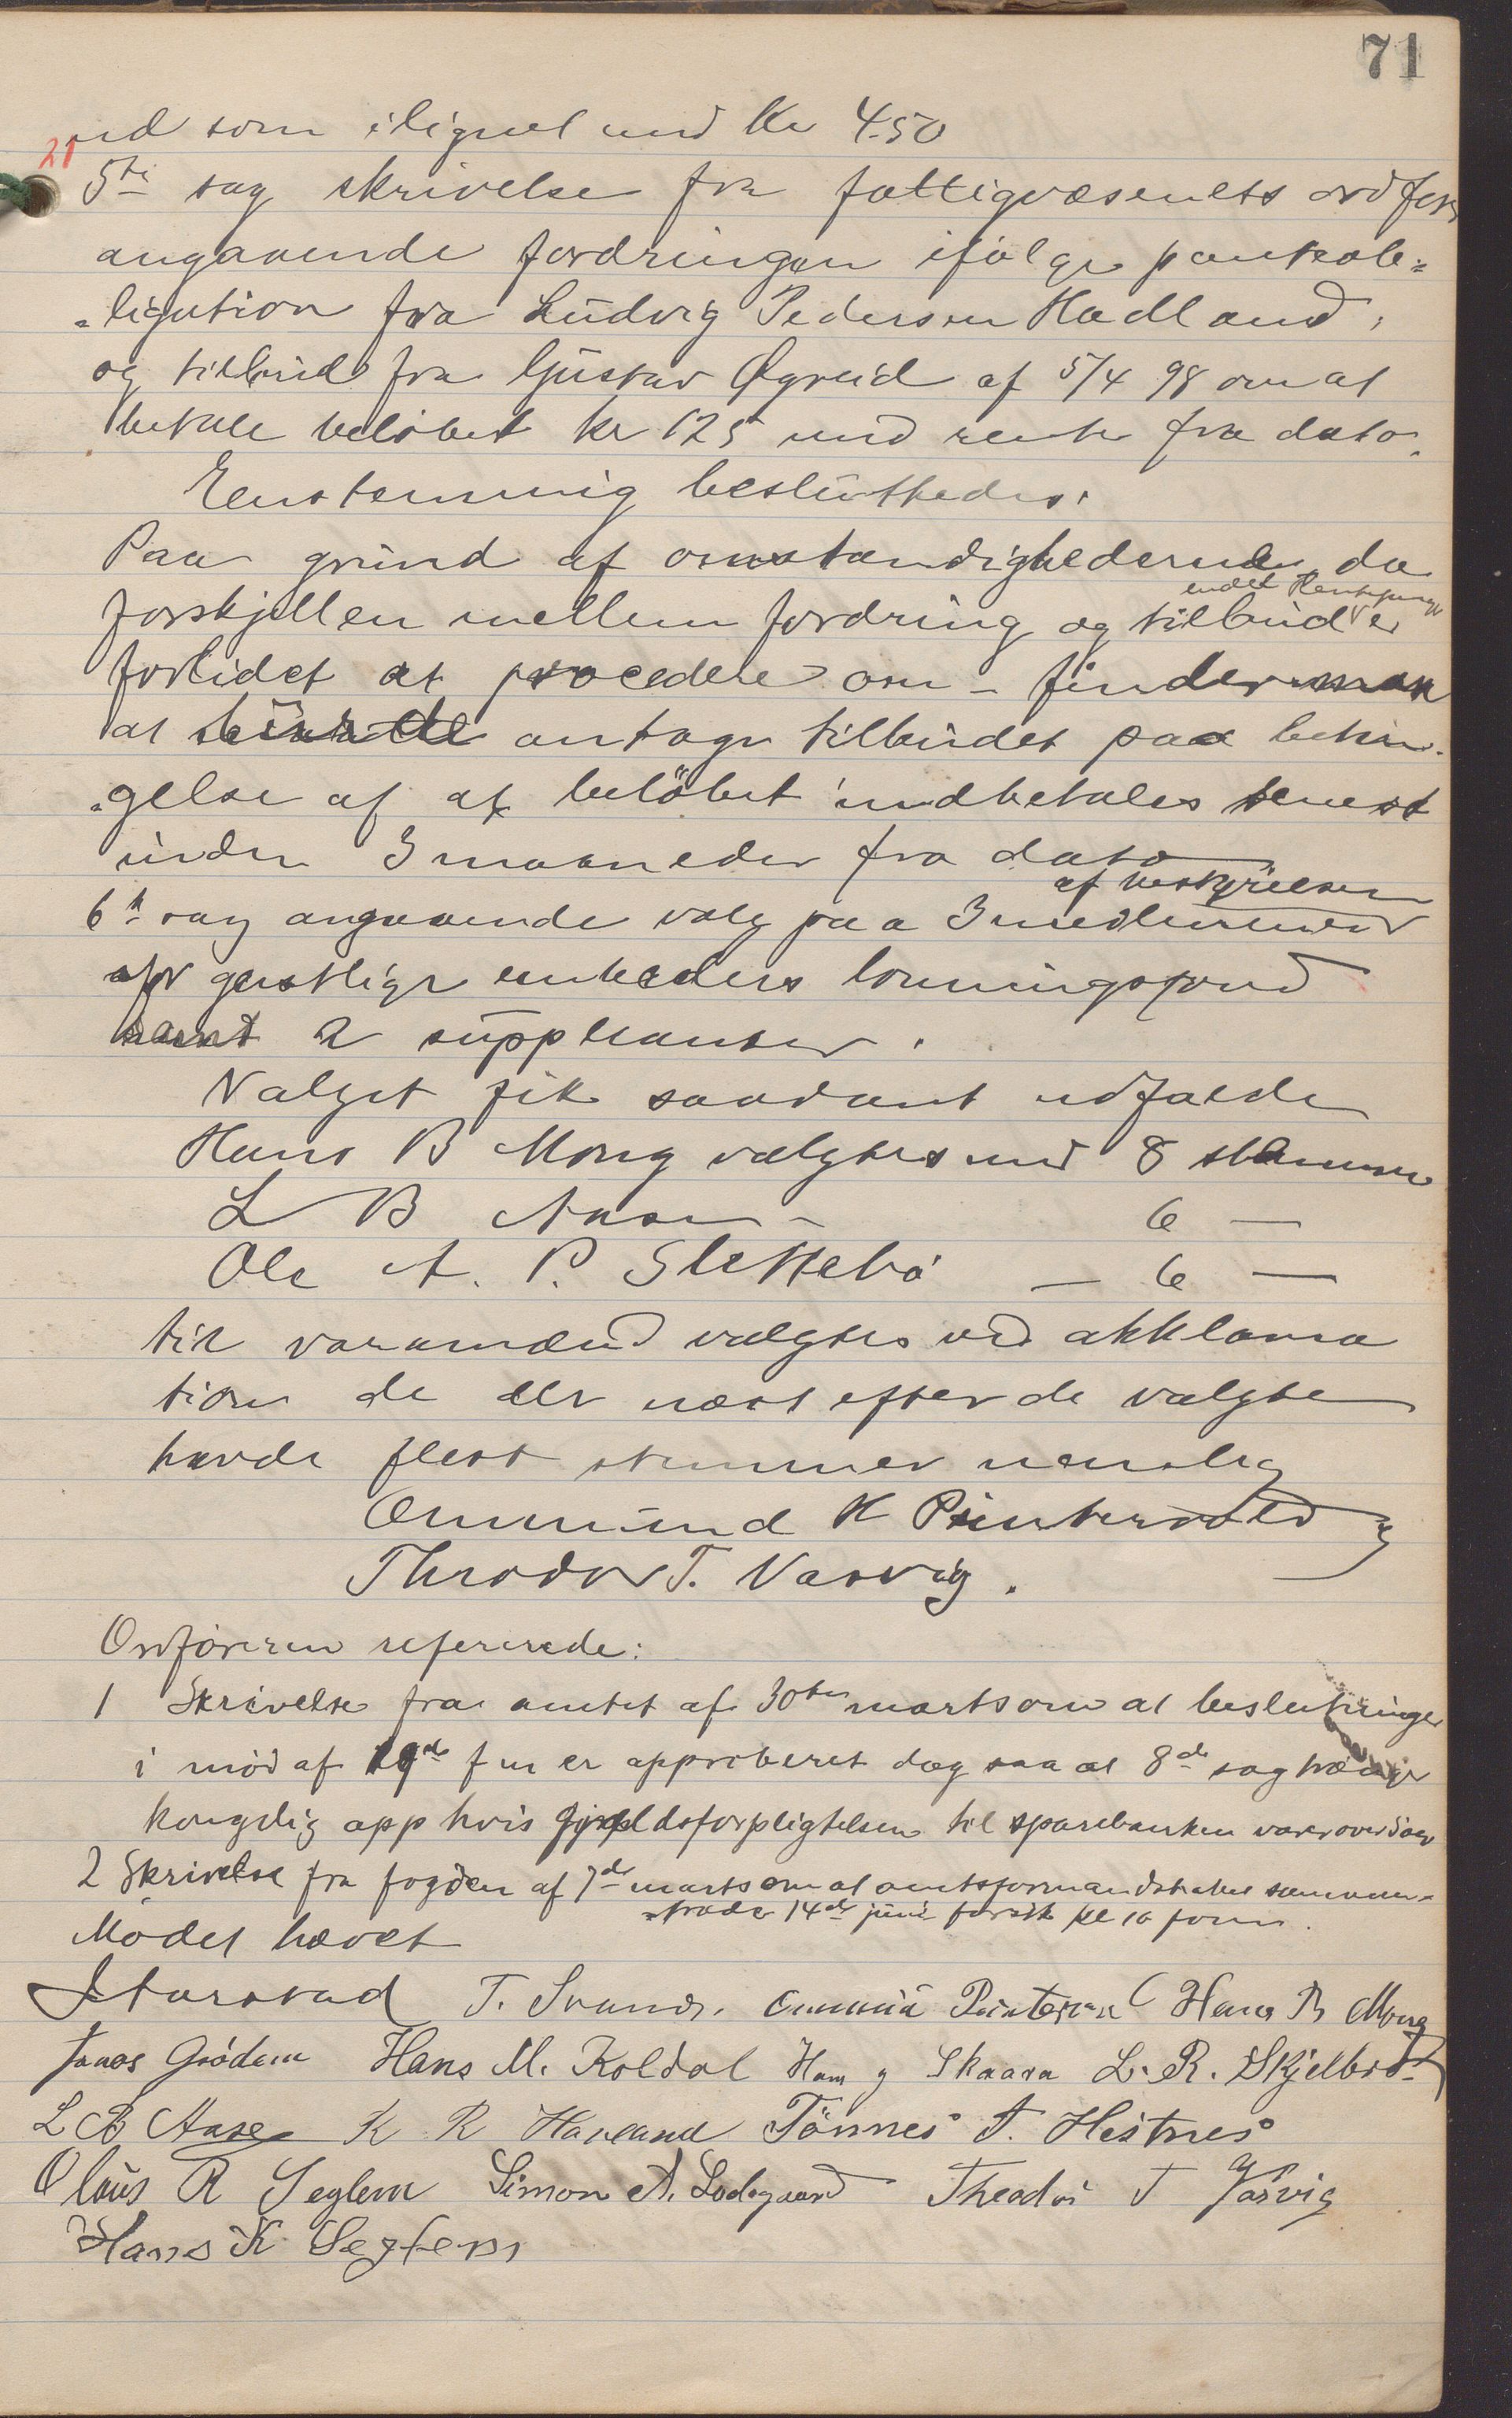 71
ud som ilignet med Kr 4.50
21
5te sag skrivelse fra fattigvæsenets ordfører
angaaende fordringen ifølge panteob=
=ligation fra Ludvig Pedersen Hadland,
og tilbud fra Gustav Øgreid af 5/4 98 om at
betale beløbet kr 125 med rente fra dato.
Eenstemmig besluttedes:
Paa grund af omstændighederne da
forskjellen mellem fordring og tilbud er
forlidet at procedere om – finder man
at antage tilbudet paa betin-
=gelse af at beløbet indbetales senest
inden 3 maaneder fra dato
af bestyrelsen
6te sag angaaende valg paa 3 medlemmer
for geistlige embeders lønningsfond
samt 2 suppleanter.
Valget fik saadant udfald
Hans B Mong valgtes med 8 stemmer
L B Aase – 6 —
Ole A. P. Slettebø — 6 —
til varamænd valgtes ved akklama
tion de der næst efter de valgte
havde flest stemmer nemlig
Ommund K Puntervold og
Theodor T. Vasvig.
Ordføreren refererede:
1 Skrivelse fra amtet af 30te marts om at beslutninger
i møde af 19de f m er approberet dog saa at 8de sag
kongelig app hvis gjældsforpligtelsen til sparebanken
2 Skrivelse fra fogden af 7de marts om at amtsformandskabet sammen=
=træder 14de juni kl 10 form.
Mødet hævet
J Aarstad T. Svanes. Ommund Puntervold Hans B Mong
Jonas Grødem Hans M. Koldal Hans J Skaara L. R. Skjelbred
L B Aase K R Havland Tönnes T. Hestnes
Olaus R Seglem Simon A. Lodegaard Theodor T Vasvig
Hans K Seglem